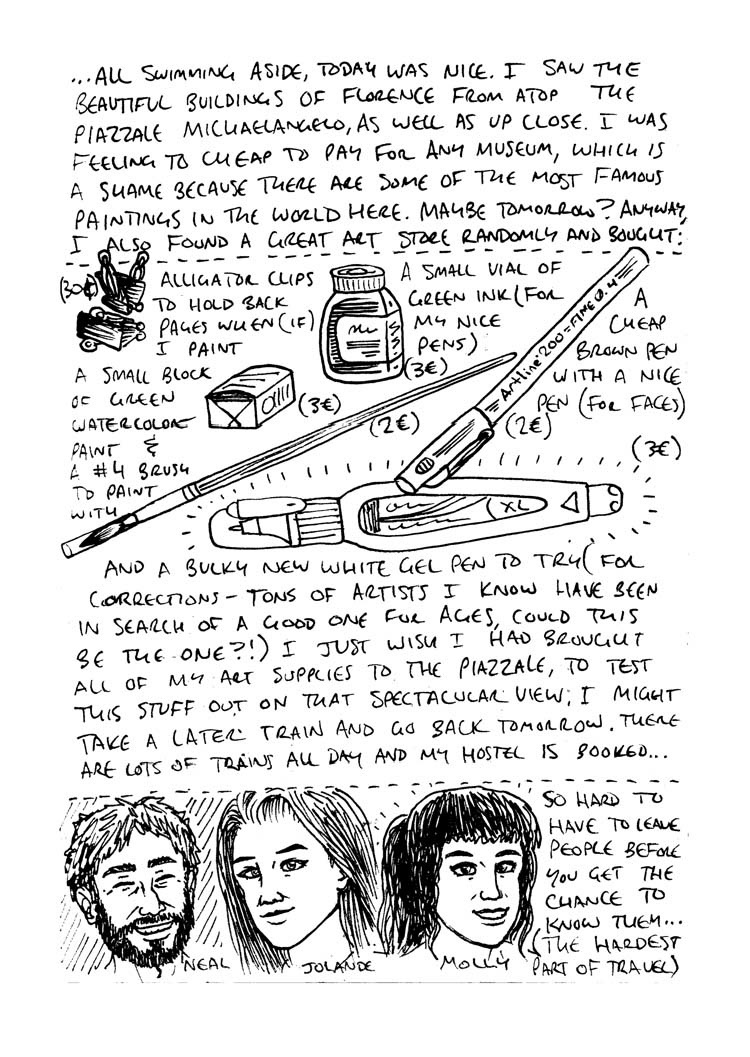 ...ALL SWIMMING ASIDE, TODAY WAS NICE. I SAW THE
BEAUTIFUL BUILDINGS OF FLORENCE FROM ATOP THE
PIAZZALE MICHAELANGELO, AS WELL AS UP CLOSE. I WAS
FEELING TO CHEAP TO PAY FOR ANY MUSEUM, WHICH IS
A SHAME BECAUSE THERE ARE SOME OF THE MOST FAMOUS
PAINTINGS IN THE WORLD HERE. MAYBE TOMORROW? ANYWAY,
I ALSO FOUND A GREAT ART STORE RANDOMLY AND BOUGHT:
(30¢)
ALLIGATOR CLIPS
TO HOLD BACK
PAGES WHEN (IF)
I PAINT
A SMALL VIAL OF
GREEN INK (FOR
MY NICE
PENS)
(3€)
A
CHEAP
BROWN PEN
WITH A NICE
PEN (FOR FACES)
(2€)
Artline 200 = FINE 0.4
A SMALL BLOCK
OF GREEN
WATERCOLOR
PAINT &
A #4 BRUSH
TO PAINT
WITH
(3€)
(2€)
(3€)
XL
AND A BULKY NEW WHITE GEL PEN TO TRY (FOR
CORRECTIONS - TONS OF ARTISTS I KNOW HAVE BEEN
IN SEARCH OF A GOOD ONE FOR AGES, COULD THIS
BE THE ONE?!) I JUST WISH I HAD BROUGHT
ALL OF MY ART SUPPLIES TO THE PIAZZALE, TO TEST
THIS STUFF OUT ON THAT SPECTACULAR VIEW; I MIGHT
TAKE A LATER TRAIN AND GO BACK TOMORROW. THERE
ARE LOTS OF TRAINS ALL DAY AND MY HOSTEL IS BOOKED...
NEAL
JOLANDE
MOLLY
SO HARD TO
HAVE TO LEAVE
PEOPLE BEFORE
YOU GET THE
CHANCE TO
KNOW THEM...
(THE HARDEST
PART OF TRAVEL)